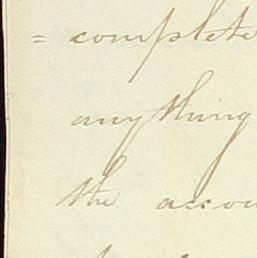 = complete
anything
the accou